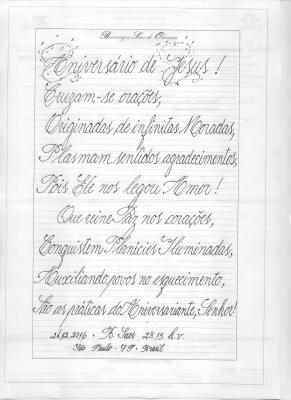 Aniversário de Jesus!
Cruzam-se orações,
Originadas de infinitas Moradas,
Plasmam sentidos agradecimentos,
Pois Ele nos legou Amor!
Que reine Paz nos corações,
Conquistem Planícies Iluminadas,
Auxiliando povos no esquecimento,
São as práticas do Aniversariante, Senhor!
2016 - 23:13 h.v.
São Paulo - SP - Brasil